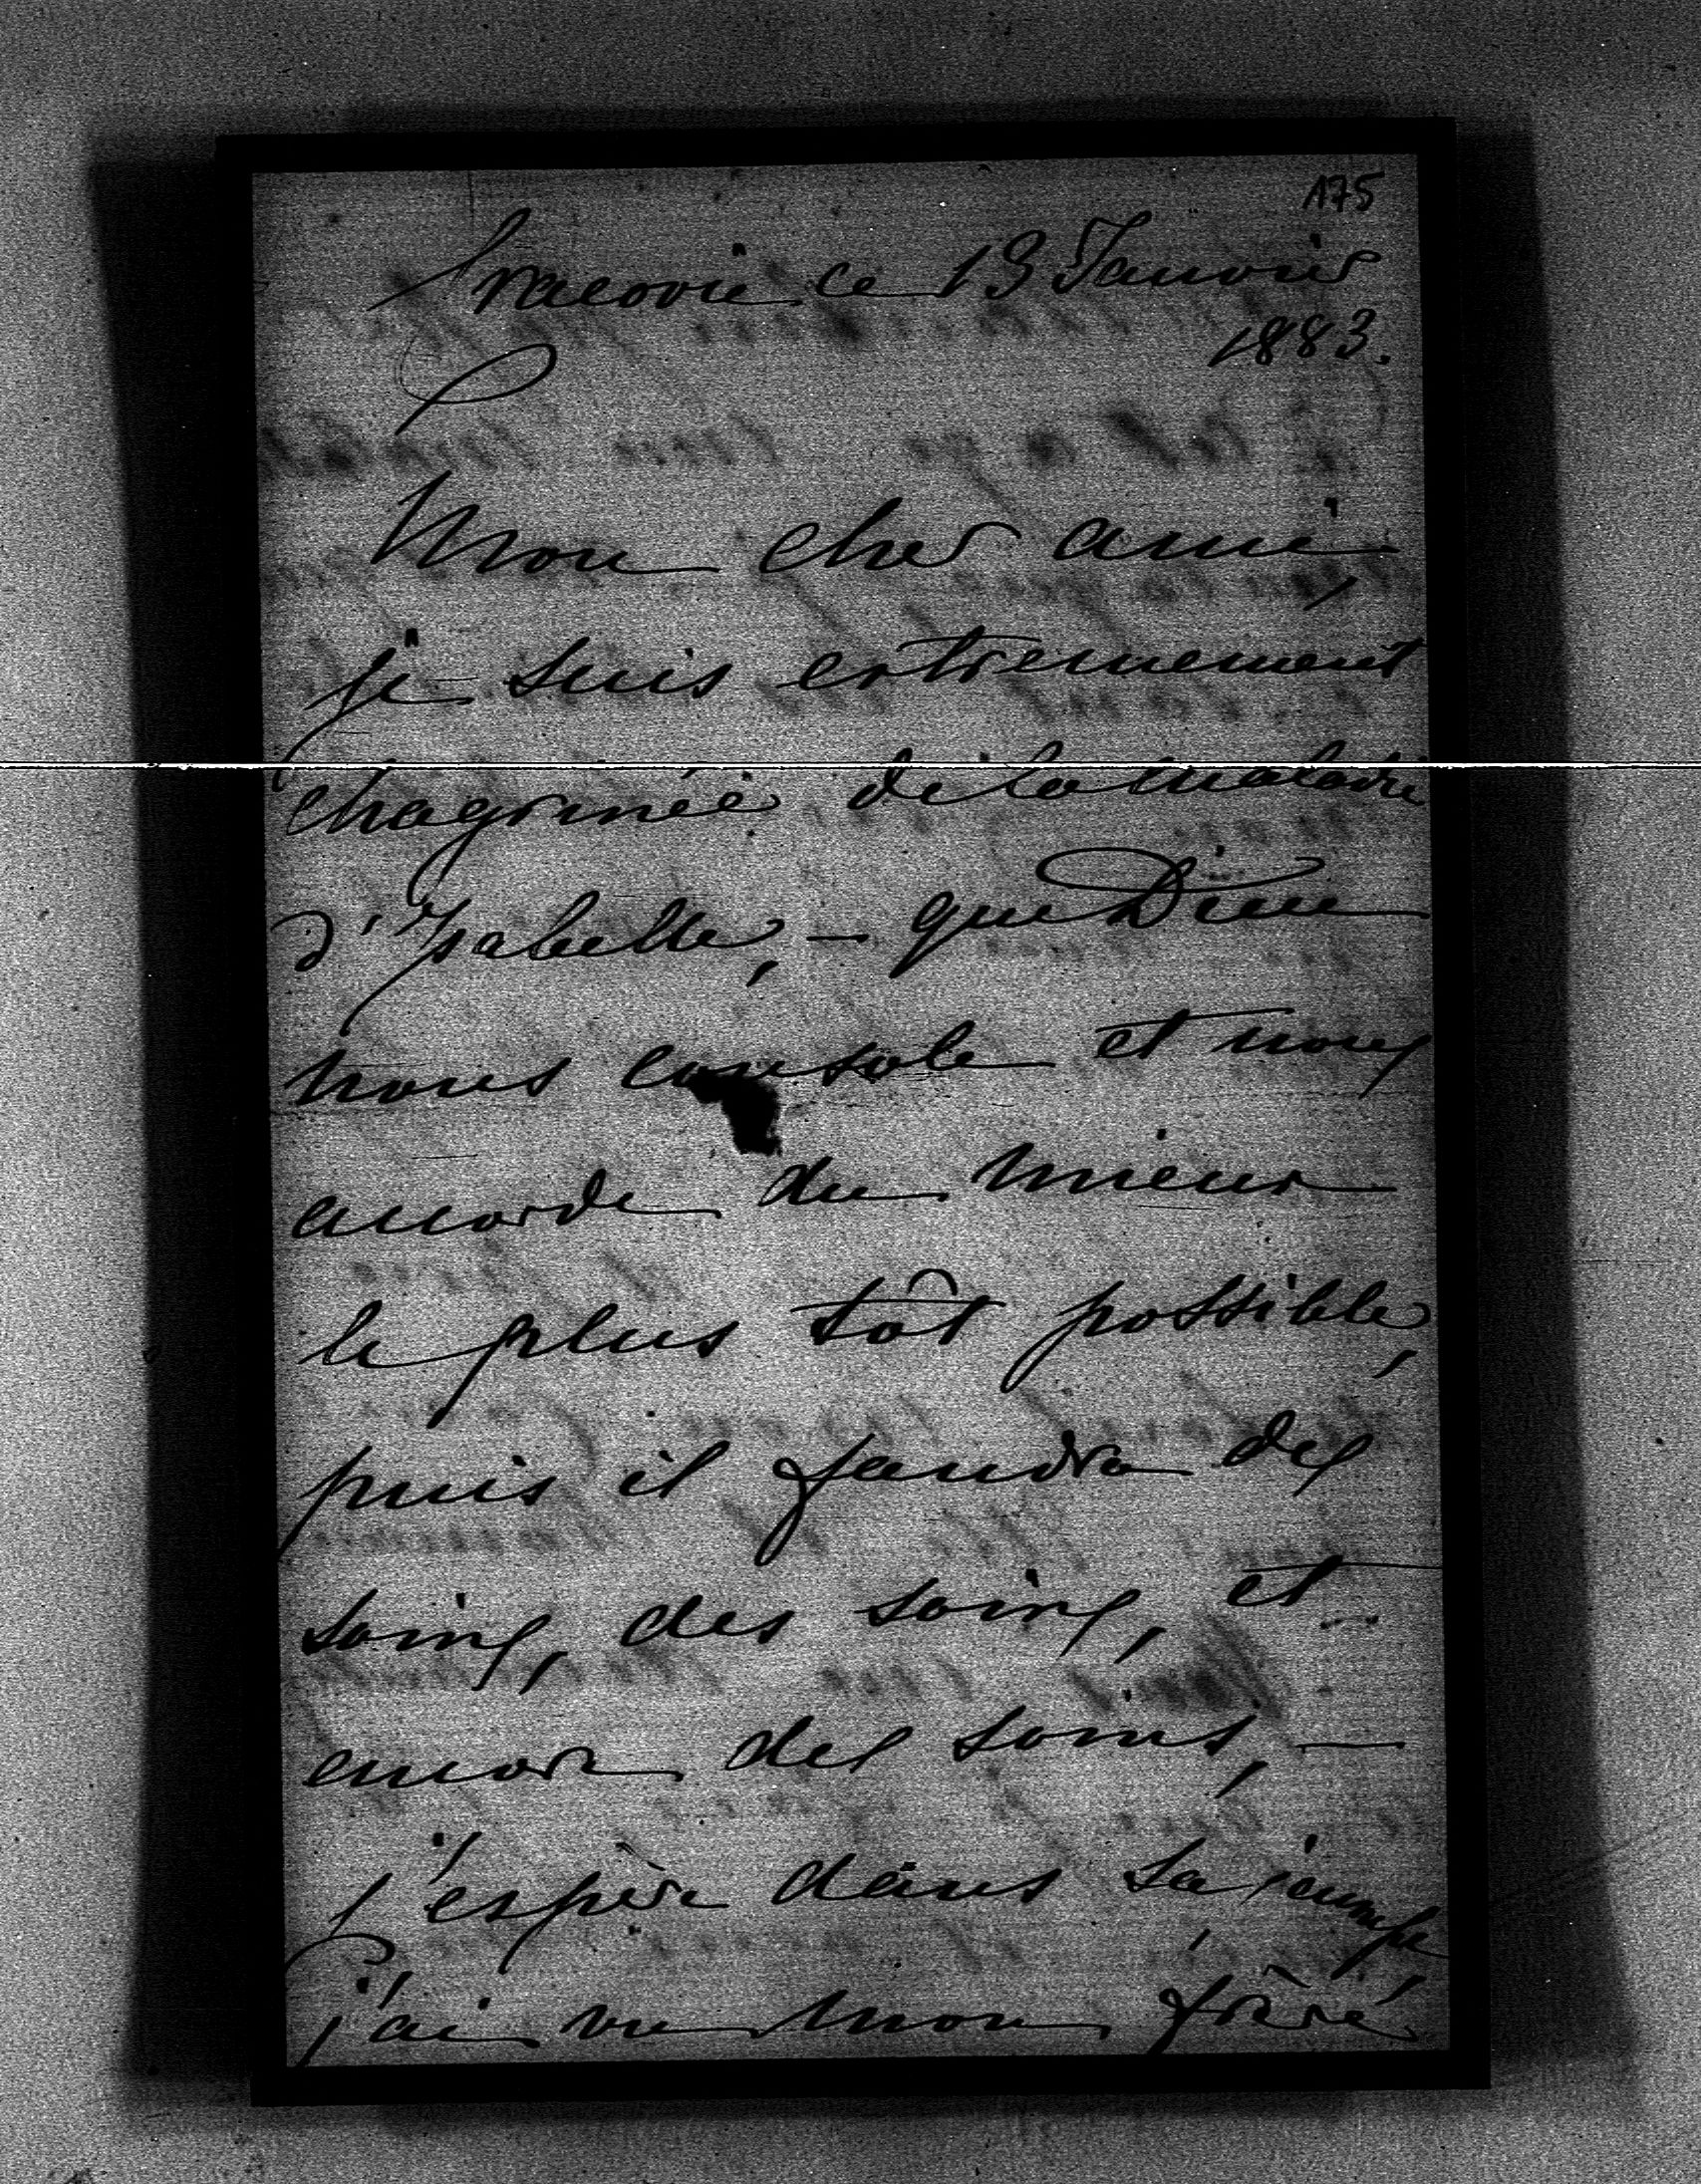 175
Cracovie ce 13 Janvier
1883.
Mon cher ami,
je suis extremement
chagrinée de la maladie
d'Isabelle, — que Dieu
nous console et nous
accorde du mieux
le plus tôt possible,
puis il faudra des
soins, des soins, et
encore des soins, —
j'espère dans sa jeunesse,
j'ai vu mon frère